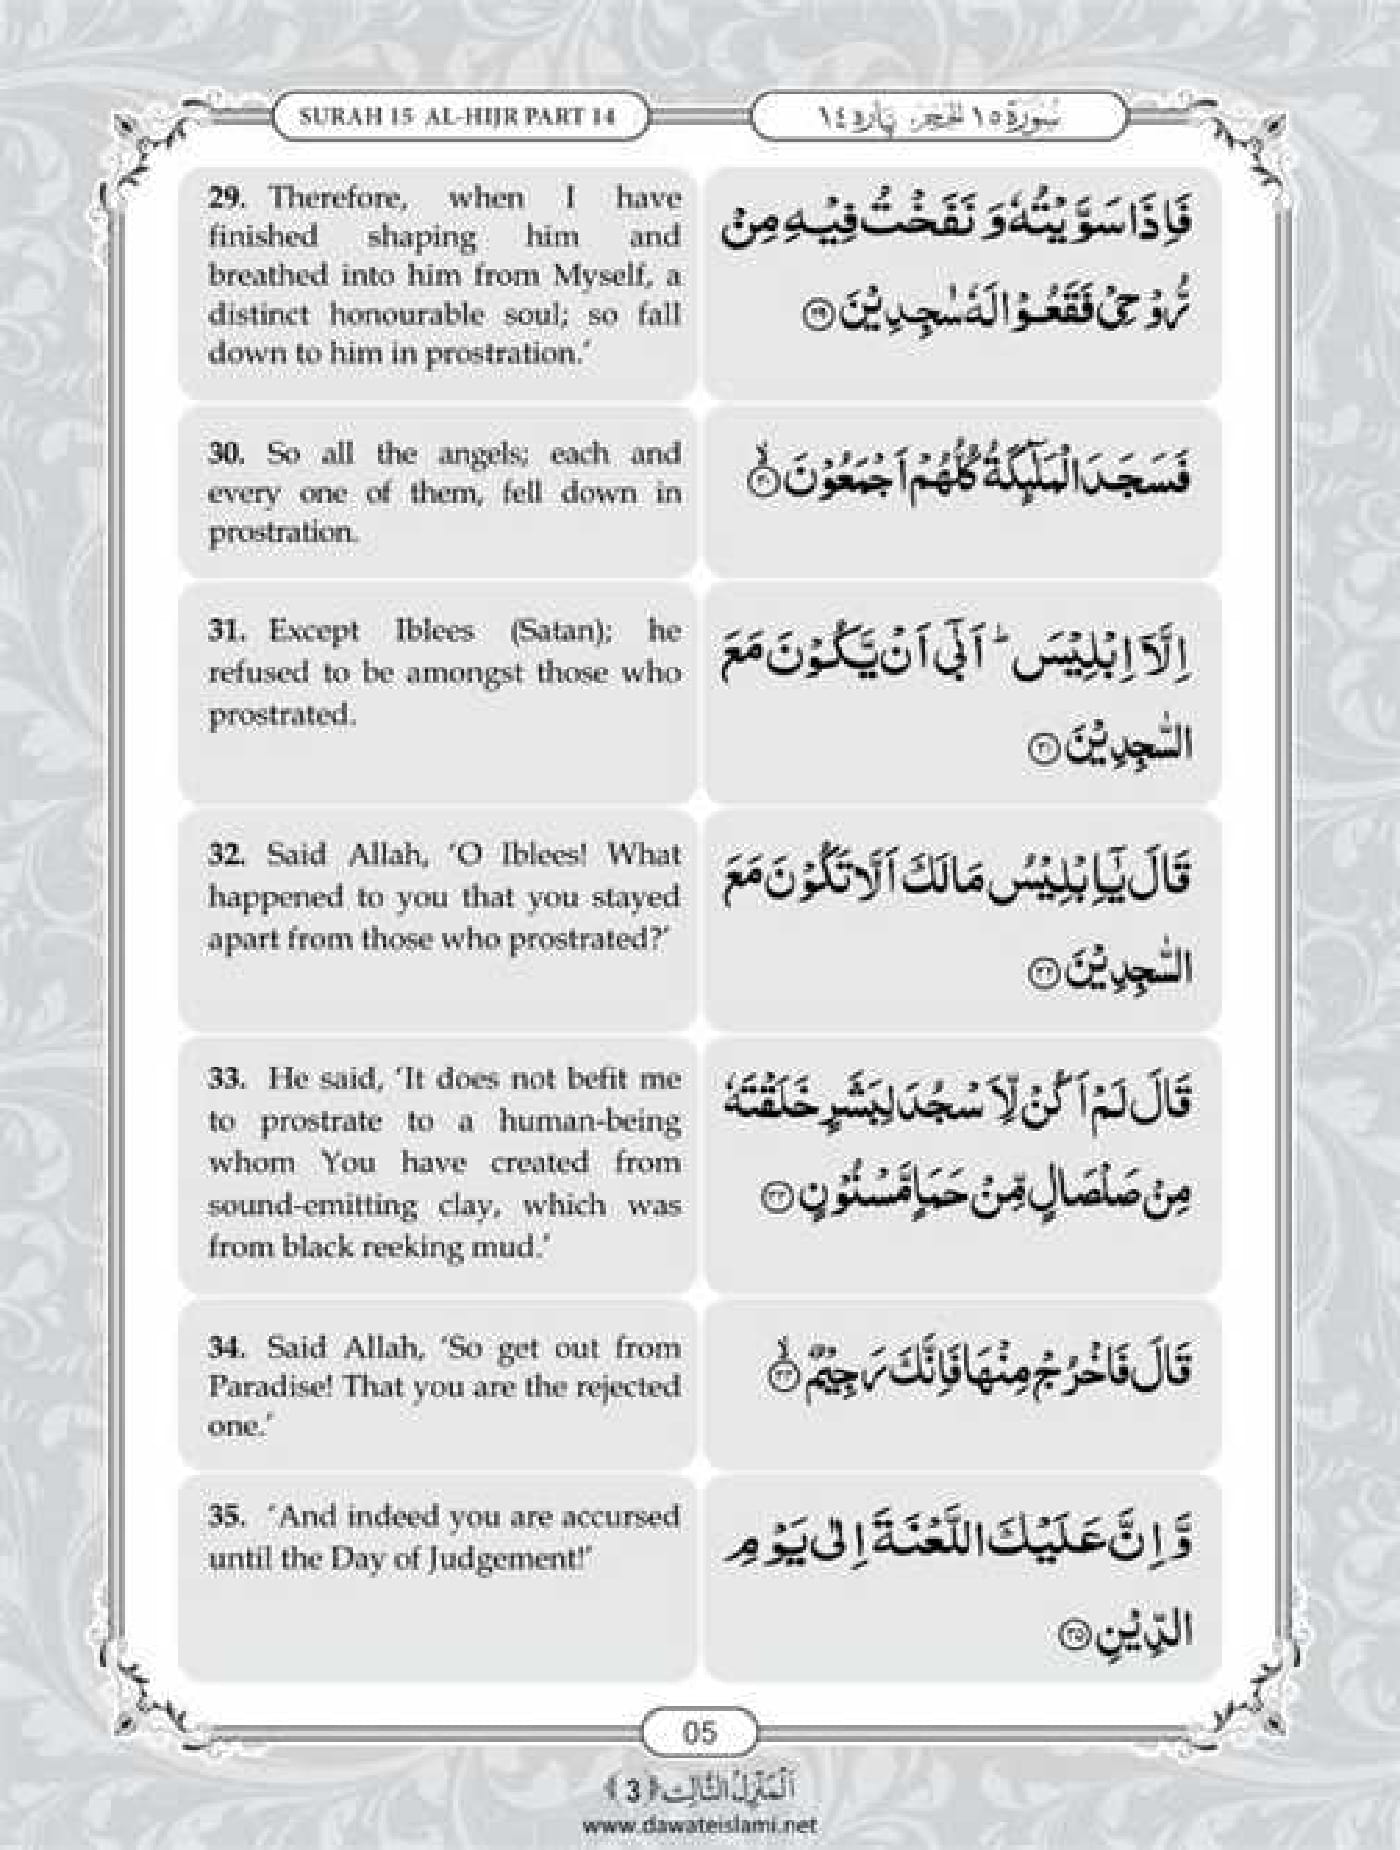 SURAH 15 AL-HIJR PART 14
سُوْرَةُ ١٥ الحجر، پاره ١٤
29. Therefore, when I have
finished shaping him and
breathed into him from Myself, a
distinct honourable soul; so fall
down to him in prostration.’
فَاِذَا سَوَّیْتُهٗ وَ نَفَخْتُ فِیْهِ مِنْ
رُّوْحِیْ فَقَعُوْا لَهٗ سٰجِدِیْنَ ﴿۲۹﴾
30. So all the angels; each and
every one of them, fell down in
prostration.
فَسَجَدَ الْمَلٰٓىِٕكَةُ كُلُّهُمْ اَجْمَعُوْنَۙ ﴿۳۰﴾
31. Except Iblees (Satan); he
refused to be amongst those who
prostrated.
اِلَّاۤ اِبْلِیْسَؕ اَبٰۤى اَنْ یَّكُوْنَ مَعَ
السّٰجِدِیْنَ ﴿۳۱﴾
32. Said Allah, ‘O Iblees! What
happened to you that you stayed
apart from those who prostrated?’
قَالَ یٰۤاِبْلِیْسُ مَا لَكَ اَلَّا تَكُوْنَ مَعَ
السّٰجِدِیْنَ ﴿۳۲﴾
33. He said, ‘It does not befit me
to prostrate to a human-being
whom You have created from
sound-emitting clay, which was
from black reeking mud.’
قَالَ لَمْ اَكُنْ لِّاَسْجُدَ لِبَشَرٍ خَلَقْتَهٗ
مِنْ صَلْصَالٍ مِّنْ حَمَاٍ مَّسْنُوْنٍ ﴿۳۳﴾
34. Said Allah, ‘So get out from
Paradise! That you are the rejected
one.’
قَالَ فَاخْرُجْ مِنْهَا فَاِنَّكَ رَجِیْمٌۙ ﴿۳۴﴾
35. ‘And indeed you are accursed
until the Day of Judgement!’
وَّ اِنَّ عَلَیْكَ اللَّعْنَةَ اِلٰى یَوْمِ
الدِّیْنِ ﴿۳۵﴾
05
اَلْمَنْزِلُ الثَّالِث ﴿3﴾
www.dawateislami.net